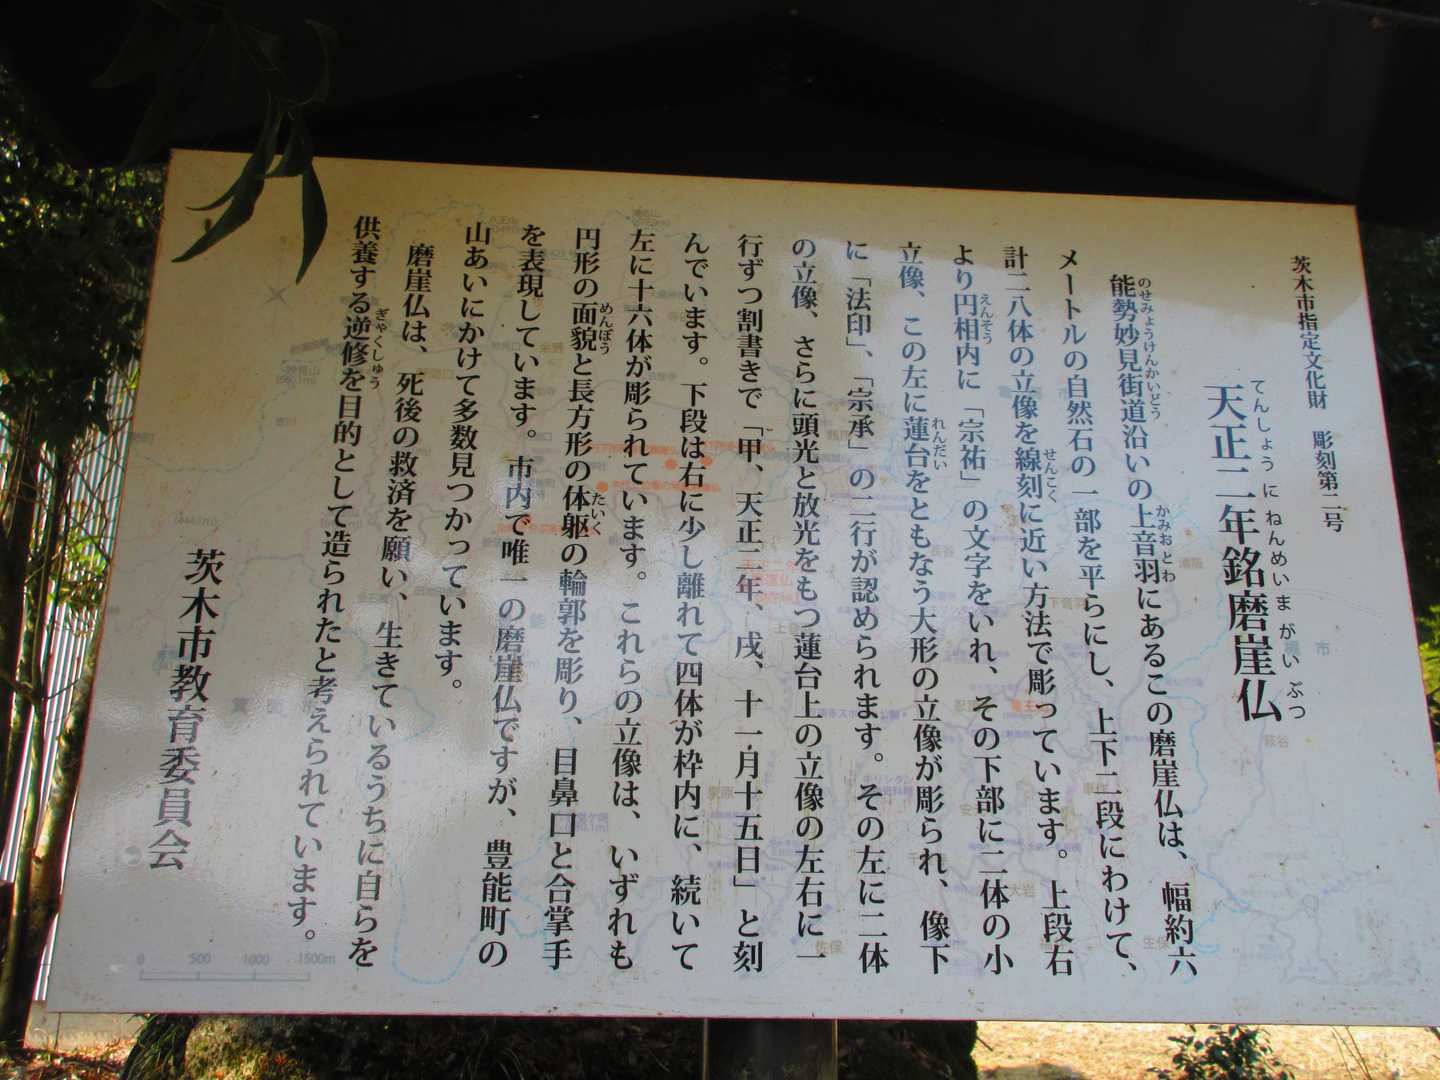 茨木市指定文化財　彫刻第二号
てんしょうにねんめいまがいぶつ
天正二年銘磨崖仏
のせみょうけんかいどう　かみおとわ
能勢妙見街道沿いの上音羽にあるこの磨崖仏は、幅約六
メートルの自然石の一部を平らにし、上下二段にわけて、
せんこく
計二八体の立像を線刻に近い方法で彫っています。上段右
えんそう
より円相内に「宗祐」の文字をいれ、その下部に二体の小
れんだい
立像、この左に蓮台をともなう大形の立像が彫られ、像下
に「法印」、「宗承」の二行が認められます。その左に二体
の立像、さらに頭光と放光をもつ蓮台上の立像の左右に一
行ずつ割書きで「甲、天正二年、戌、十一月十五日」と刻
んでいます。下段は右に少し離れて四体が枠内に、続いて
左に十六体が彫られています。これらの立像は、いずれも
めんぼう　たいく
円形の面貌と長方形の体躯の輪郭を彫り、目鼻口と合掌手
を表現しています。市内で唯一の磨崖仏ですが、豊能町の
山あいにかけて多数見つかっています。
磨崖仏は、死後の救済を願い、生きているうちに自らを
ぎゃくしゅう
供養する逆修を目的として造られたと考えられています。
茨木市教育委員会
0 500 1000 1500m